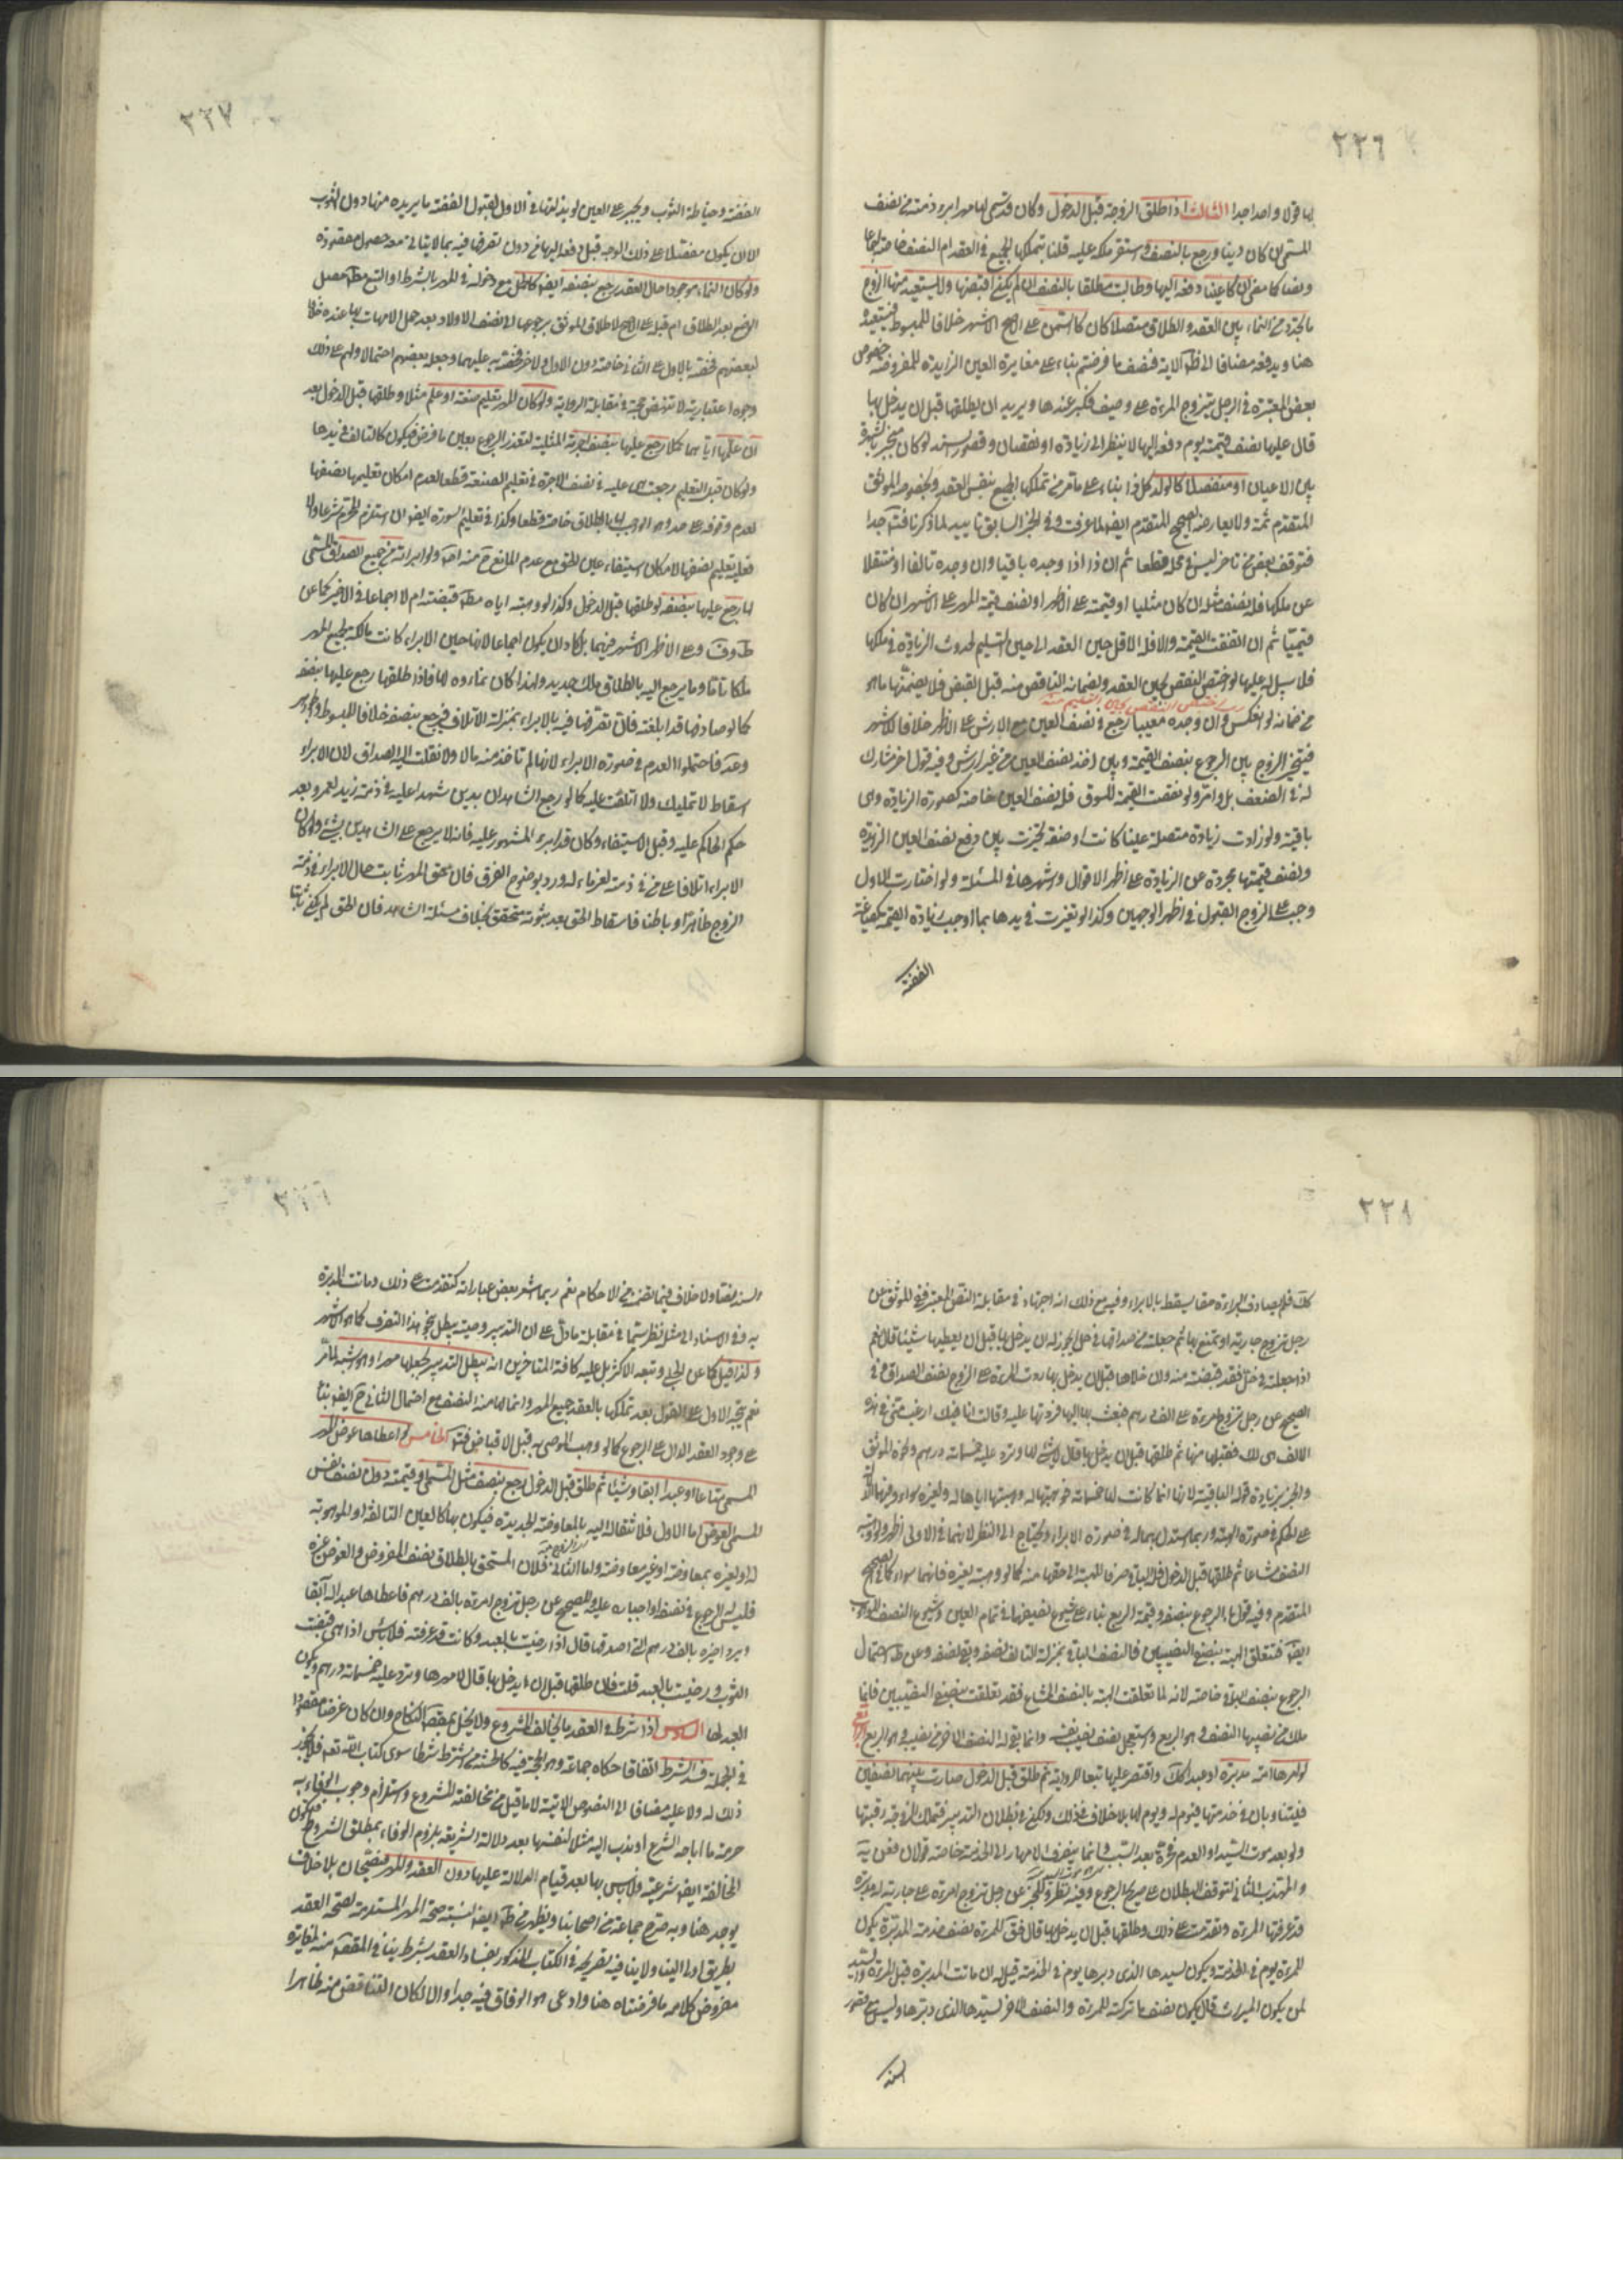 ٢٢٦
بها قولا واحدا جدا الثالث اذا طلق الزوجة قبل الدخول وكان قد سمى لها مهرا برء ذمته من نصف
المسمى ان كان دينا ورجع بالنصف واستقر ملكه عليه قلنا بتملكها الجميع في العقد ام النصف خاصة اجماعا
ونصا كما مضى ان كان عينا دفعه اليها وطالبت مطلقا بالنصف ان لم يكن اقبضها ولا يستعيد منها الزوج
ما تجدد من النماء بين العقد والطلاق متصلا كان كالسمن على الاصح الاشهر خلافا للمبسوط فيستعيد
هنا ويدفعه مضافا الى ظ الآية فنصف ما فرضتم بناء على مغايرة العين الزايدة للمفروضة خصوص
بعض المعتبرة في الرجل يتزوج المرءة على وصيف فكبر عندها ويريد ان يطلقها قبل ان يدخل بها
قال عليها نصف قيمته يوم دفعه اليها لا ينظر الى زيادة او نقصان وقصور السند لو كان منجبر بالشهرة
بين الاعيان او منفصلا كالولد بناء على ما مر من تملكها الجميع بنفس العقد وبخصوص الموثق
المتقدم ثمة ولا يعارضه الصحيح المتقدم ايضا لما عرفت وفي الخبر السابق تاييد لما ذكرنا فتدبر جدا
فتوقف بعض من تاخر ليس في محله قطعا ثم ان ذا اذا وجده باقيا وان وجده تالفا او منتقلا
عن ملكها فله نصف مثله ان كان مثليا او قيمته على الاظهر او نصف قيمة المهر على الاشهر ان كان
قيميا ثم ان اتفقت القيمة والا فله الاقل حين العقد الى حين التسليم لحدوث الزيادة في ملكها
فلا سبيل له عليها لو اختص النقص بحين العقد ولضمانه الناقص منه قبل القبض فلا يضمنها ما هو
من ضمانه لو انعكس وان وجده معيبا رجع في نصف العين مع الارش على الاظهر خلافا للاشهر
فيتخير الزوج بين الرجوع بنصف القيمة وبين اخذ نصف العين من غير ارش وفيه قول اخر مشارك
له في الضعف بل واتم ولو نقصت القيمة للسوق فله نصف العين خاصة كصورة الزيادة وهي
باقية ولو زادت زيادة متصلة عينا كانت او صفة تخيرت بين دفع نصف العين الزايدة
ونصف قيمتها مجردة عن الزيادة على اظهر الاقوال واشهرها في المسئلة ولو اختارت الاول
وجب على الزوج القبول في اظهر الوجهين وكذا لو تغيرت في يدها بما اوجب زيادة القيمة كصياغة
الفضة
٢٢٧
الفضة وخياطة الثوب ويجبر على العين لو بذلتها في الاول لقبول الفضة ما يريده منها دون الثوب
الا ان يكون مفصلا على ذلك الوجه قبل دفعه اليها من دون تصرفها فيه بما لا يتاتى معه حصول مقصوده
ولو كان النماء موجودا حال العقد رجع بنصفه ايضا كالحمل مع دخوله في المهر بالشرط او التبع مطلقا حصل
الوضع بعد الطلاق ام قبله على الاصح لاطلاق الموثق برجوعها الى نصف الاولاد بعد حمل الامهات بها عنده خلافا
لبعضهم فخصه بالاول على الثاني خاصة دون الاول ولاخر فخصه به عليهما وجعله بعضهم احتمالا ولهم على ذلك
وجوه اعتبارية لا تنهض حجة في مقابلة الرواية ولو كان المهر تعليم صنعة او علم مثلا وطلقها قبل الدخول بعد
ان علمها اياهما كملا رجع عليها بنصف اجرة المثلية لتعذر الرجوع بعين ما فرض فيكون كالتالف في يدها
ولو كان قبل التعليم رجعت هي عليه في نصف الاجرة في تعليم الصنعة قطعا لعدم امكان تعليمها نصفها
لعدم وقوفه على حد وهو الواجب لها بالطلاق خاصة قطعا وكذا في تعليم السورة ايضا ان استلزم المحرم شرعا والا
فعليه تعليم نصفها لامكان استيفاء عين الحق مع عدم المانع ح منه اصلا ولو ابراته من جميع الصداق المسمى
لها رجع عليها بنصفه لو طلقها قبل الدخول وكذا لو وهبته اياه مطلقا قبضته ام لا اجماعا في الاخير كما عن
ط وف وعلى الاظهر الاشهر فيهما بل كاد ان يكون اجماعا لانها حين الابراء كانت مالكة لجميع المهر
ملكا تاما وما يرجع اليه بالطلاق ملك جديد ولهذا كان نماؤه لها فاذا طلقها رجع عليها بنصفه
كما لو صادفها قد ابلغته فان تصرفها فيه بالابراء بمنزلة الاتلاف فيرجع بنصفه خلافا للمبسوط
وعد فاحتملوا العدم في صورة الابراء لانها لم تاخذ منه مالا ولا نقلت اليه الصداق لان الابراء
اسقاط لا تمليك ولا اتلفت عليه كما لو رجع الشاهدان بدين شهدا عليه في ذمة زيد لعمرو بعد
حكم الحاكم عليه وقبل الاستيفاء وكان قد ابرء المشهود عليه فانه لا يرجع على الشاهدين بشيء ولو كان
الابراء اتلافا على من في ذمته لغرماء له ورد بوضوح الفرق فان حق المهر ثابت حال الابراء في ذمة
الزوج ظاهرا وباطنا فاسقاط الحق بعد ثبوته متحقق بخلاف مسئلة الشاهد فان الحق لم يكن ثابتا
٢٢٨
كك فلم يصادف البراءة حقا يسقط بالابراء وفيه مع ذلك انه اجتهاد في مقابلة النص المعتبر ففي الموثق عن
رجل تزوج جارية او تمتع بها ثم جعلته من صداقها في حل ايجوز له ان يدخل بها قبل ان يعطيها شيئا قال نعم
اذا جعلته في حل فقد قبضته منه وان خلاها قبل ان يدخل بها ردت المرءة على الزوج نصف الصداق وفي
الصحيح عن رجل تزوج امرءة على الف درهم فبعث بها اليها فردتها عليه وقالت انا فيك ارغب مني في هذه
الالف هي لك فقبلها منها ثم طلقها قبل ان يدخل بها قال لا شيء لها وترد عليه خمسمائة درهم ونحوه الموثق
والخبر بزيادة قوله الباقية لانها انما كانت لها خمسمائة فوهبتها له وهبتها اياها له ولغيره سواء
على الحكم في صورة الهبة وربما استدل بهما له في صورة الابراء ويحتاج الى النظر لانهما في الاولى اظهر ولو وهبته
النصف مشاعا ثم طلقها قبل الدخول فله الباقي صرفا للهبة الى حقها منه كما لو وهبته لغيره فانهما سواء كما في الصحيح
المتقدم وفيه قول بالرجوع بنصفه وقيمة الربع بناء على شيوع نصيبهما في تمام العين وشيوع النصف الموهوب
ايضا فتتعلق الهبة بنصف النصيبين فالنصف الباقي بمنزلة التالف نصفه وبقي نصفه وعن ط احتمال
الرجوع بنصف الباقي خاصة لانه لما تعلقت الهبة بالنصف المشاع فقد تعلقت بنصف النصيبين فانما
ملك من نصيبها النصف وهو الربع واستعجل نصف نصيبه وانما بقي له النصف الاخر من نصيبه وهو الربع الرابع
لو امهرها امة مدبرة او عبدا كك واقتصر عليها تبعا للرواية ثم طلق قبل الدخول صارت بينهما نصفين
فيتناوبان في خدمتها فيوم له ويوم لها بلا خلاف في ذلك ولكن في بطلان التدبير فتملك الزوجة رقبتها
ولو بعد موت السيد او العدم فحرة بعد السبب وانما ينصرف الامهار الى الخدمة خاصة قولان فعن ية
والمهذب الثاني لتوقف البطلان على صريح الرجوع وفيه نظر وللخبر عن رجل تزوج امرءة على جارية له مدبرة
قد عرفتها المرءة وتقدمت على ذلك وطلقها قبل ان يدخل بها قال فقال للمرءة نصف خدمة المدبرة يكون
للمرءة يوم في الخدمة ويكون لسيدها الذي دبرها يوم في الخدمة قيل له ان ماتت المدبرة قبل المرءة والسيد
لمن يكون الميراث قال يكون نصف ما تركته للمرءة والنصف الاخر لسيدها الذي دبرها وليس مع قصور
السند
السند نصا ولا خلاف فيما تضمنه من الاحكام نعم ربما اشعر بعض عباراته كتقدمت على ذلك وماتت المدبرة
به وفي الاسناد الى مثله نظر سيما في مقابلة ما دل على ان التدبير وصية يبطل بنحو هذا التصرف كما هو الاشهر
ولذا قيل كما عن الحلي وتبعه الاكثر بل عليه كافة المتاخرين انه يبطل التدبير بجعلها مهرا وهو اشبه لما مر
نعم يتجه الاول على القول بعد تملكها بالعقد جميع المهر وانما لها منه النصف مع احتمال الثاني ح ايضا بناء
على وجود العقد الدال على الرجوع كما لو وهب الموصى به قبل الاقباض فتدبر الخامس لو اعطاها عوض المهر
المسمى متاعا او عبدا ابقا وشيئا ثم طلق قبل الدخول رجع بنصف مثل المسمى او قيمته دون نصف نفس
المسمى والعوض اما الاول فلانتقاله اليه بالمعاوضة الجديدة فيكون بها كالعين التالفة او الموهوبة
له او لغيره بمعاوضة او غير معاوضة واما الثاني فلان المستحق بالطلاق نصف المفروض والعوض غيره
فليس له الرجوع في نصفه او اجباره عليه وللصحيح عن رجل تزوج امرءة بالف درهم فاعطاها عبدا له آبقا
وبردا حبرة بالف درهم التي اصدقها قال اذا رضيت بالعبد وكانت قد عرفته فلا باس اذا هي قبضت
الثوب ورضيت بالعبد قلت فان طلقها قبل ان يدخل بها قال لا مهر لها وترد عليه خمسمائة درهم ويكون
العبد لها السادس اذا شرط في العقد ما يخالف المشروع ولا يخل بمقصود النكاح وان كان غرضا مقصودا
في الجملة فسد الشرط اتفاقا حكاه جماعة وهو الحجة فيه كالمستفيضة من اشترط شرطا سوى كتاب الله تعالى فلا يجوز
ذلك له ولا عليه مضافا الى النصوص الاتية لا ما قيل من مخالفته المشروع واستلزام وجوب الوفاء به
حرمة ما اباحه الشرع او ندب اليه مثلا لنفسها بعد دلالة الشريعة بلزوم الوفاء بمطلق الشروط فيكون
المخالفة ايضا شرعية وليس بها بعد قيام الدلالة عليها دون العقد والمهر فيصحان بلا خلاف
يوجد هنا وبه صرح جماعة من اصحابنا ويظهر من ط ايضا لنسبة صحة المهر المستلزمة لصحة العقد
بطريق اولى الينا ولا ينافيه تصريحه في الكتاب المذكور بفساد العقد بشرط ينافي المقصود منه لمغايرة
مفروض كلامه ما فرضناه هنا وادعى هو الوفاق فيه جدا والا لكان التناقض منه ظاهرا